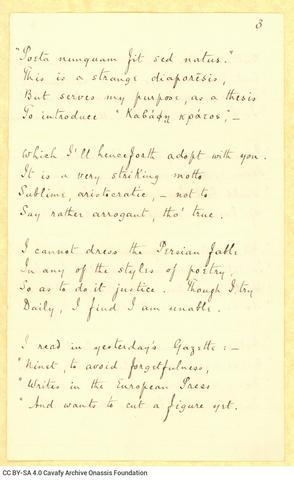 3
"Poeta nunquam fit sed natus."
This is a strange diaporēsis,
But serves my purpose, as a thesis
To introduce "Καβάφη κράτος", –
which I'll henceforth adopt with you.
It is a very striking motto
Sublime, aristocratic, – not to
Say rather arrogant, tho' true.
I cannot dress the Persian fable
In any of the styles of poetry,
So as to do it justice. Though I, try
Daily, I find I am unable.
I read in yesterday's Gazette: –
"Ninet, to avoid forgetfulness,
"Writes in the European Press
"And wants to cut a figure yet.
CC BY-SA 4.0 Cavafy Archive Onassis Foundation